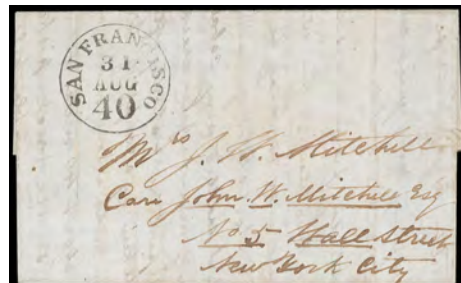 SAN FRANCISCO
31
AUG
40
Mrs J. W. Mitchell
Care John W. Mitchell Esq
No 5 Wall Street
New York City